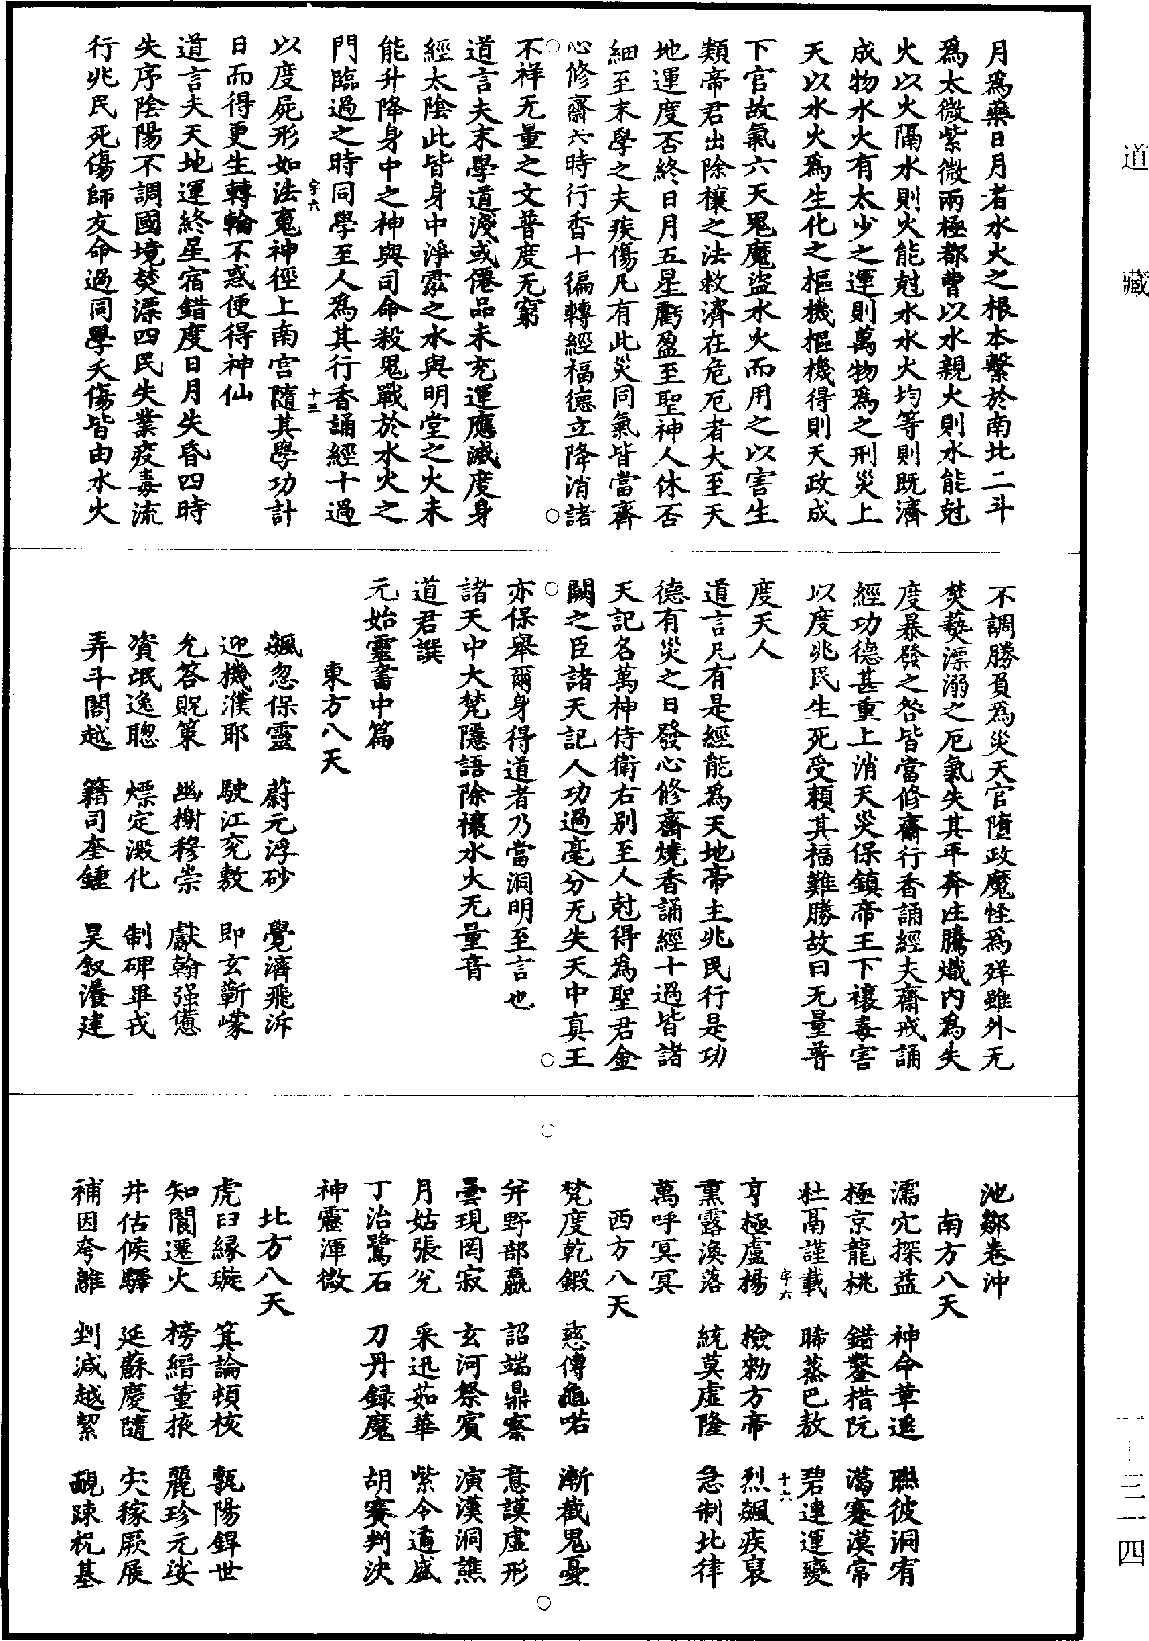 道藏
月為藥日月者水火之根本繫於南北二斗
為太微紫微兩極都曹以水親火則水能尅
火以火隔水則火能尅水水火均等則既濟
成物水火有太少之運則萬物為之刑災上
天以水火為生化之樞機樞機得則天政成
下官故氣六天鬼魔盜水火而用之以害生
類帝君出除禳之法救濟在危厄者大至天
地運度否終日月五星虧盈至聖神人休否
細至末學之夫疾傷凡有此災同氣皆當齋
心修齋六時行香十徧轉經福德立降消諸
不祥无量之文普度无窮
道言夫末學道淺或僊品未充運應滅度身
經太陰此皆身中淨霐之水與明堂之火未
能升降身中之神與司命殺鬼戰於水火之
門臨過之時同學至人為其行香誦經十過
字六 十三
以度屍形如法䰟神徑上南宮隨其學功計
日而得更生轉輪不惑便得神仙
道言夫天地運終星宿錯度日月失昏四時
失序陰陽不調國境焚漂四民失業疫毒流
行兆民死傷師友命過同學夭傷皆由水火
不調勝負為災天官墮政魔怪為殃雖外无
焚爇漂溺之厄氣失其平奔注騰熾内為失
度暴發之咎皆當修齋行香誦經夫齋戒誦
經功德甚重上消天災保鎮帝王下禳毒害
以度兆民生死受賴其福難勝故曰无量普
度天人
道言凡有是經能為天地帝主兆民行是功
德有災之日發心修齋燒香誦經十過皆諸
天記名萬神侍衛右别至人尅得為聖君金
闕之臣諸天記人功過毫分无失天中真王
亦保舉爾身得道者乃當洞明至言也
諸天中大梵隱語除禳水火无量音
道君譔
元始靈書中篇
東方八天
飊忽保靈 蔚元浮砂 覺濟飛泝
迎機濮耶 駛江兖敷 即玄蘄嶸
允答貺策 幽榭穆崇 獻翰强憊
資氓逸聰 煙定澱化 制碑畢戎
弄斗閤越 籍司奎鍾 昊叙濩建
池鄒卷沖
南方八天
濡穴探益 神命草遥 聯彼洞宥
極京龍桃 錯鑿楷阮 濿蹇漠常
杜鬲謹載 睎蒸巴敖 碧連運變
字六 十六
亨極盧楊 檢勑方帝 烈飊疾裒
熏露渙落 統莫虛隆 急制北律
萬呼冥冥
西方八天
梵度乾鍛 慈傳龜喏 漸截鬼憂
弁野部嬴 詔端鼎察 意謨虛形
曇現罔寂 玄河祭賓 演漢洞譙
月姑張兊 采迅茹華 紫令遒盛
丁治鷺石 刀丹録魔 胡賽判決
神靈渾微
北方八天
虎臼緣璇 箕論頓核 甄陽鋅世
知閬遷火 榜縉董掖 麗珍元娑
井估候驛 延蘇慶隨 宍稼厥展
補因夸離 刲減越絜 覶踈柷基
一-三二四